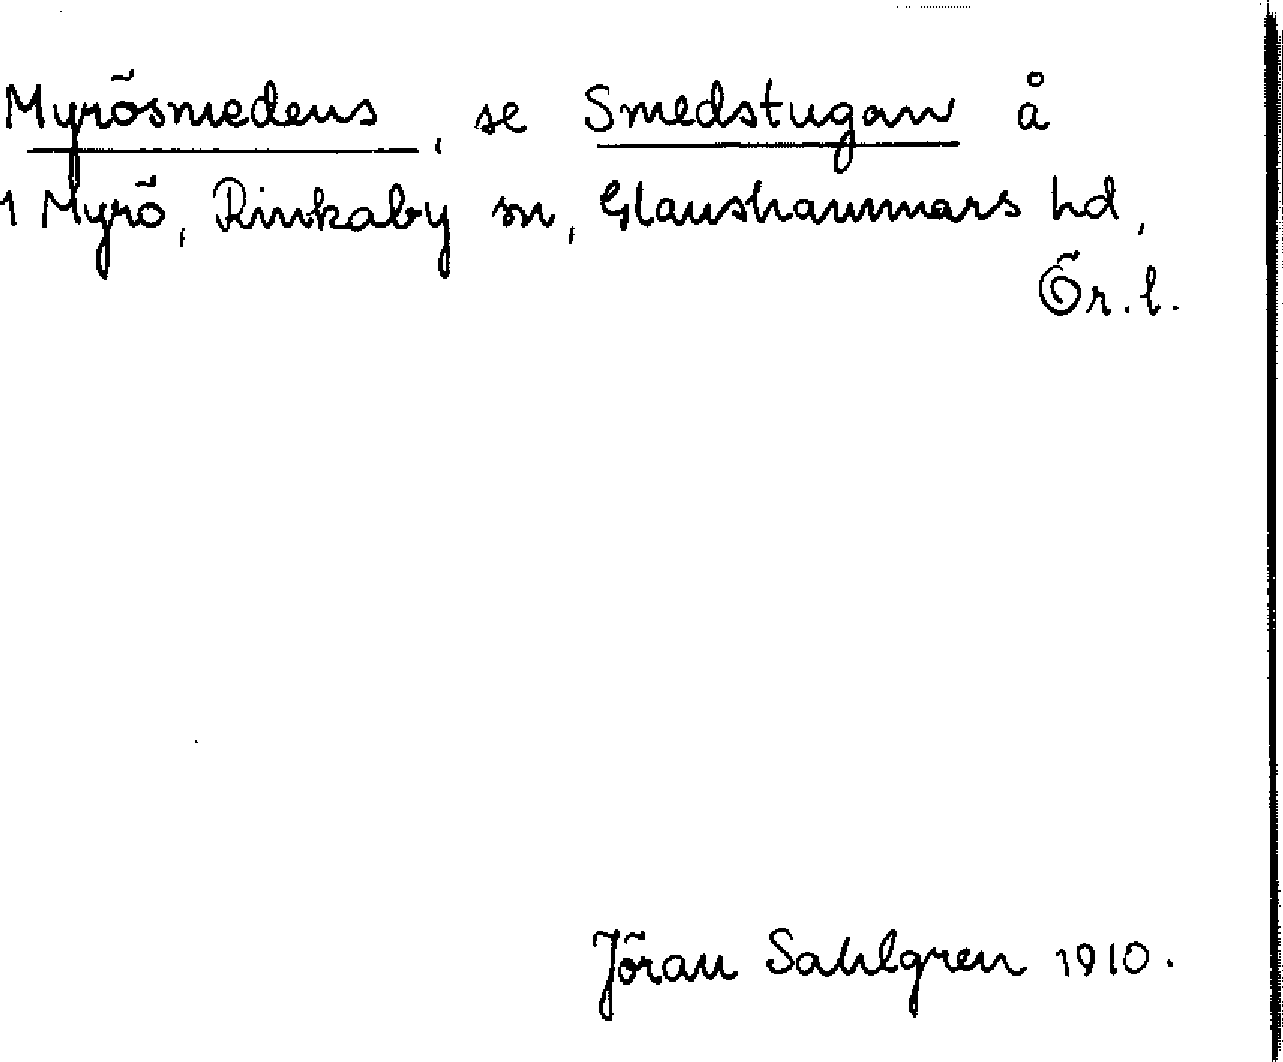 Myrösmedens, se Smedstugan å
1 Myrö, Rinkaby sn, Glanshammars hd,
Ör. l.
Jöran Sahlgren 1910.